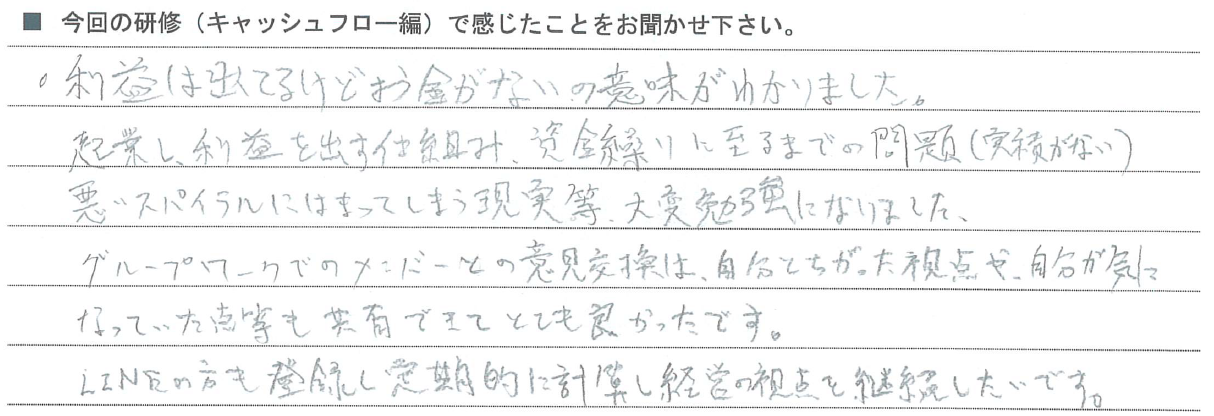 ■ 今回の研修（キャッシュフロー編）で感じたことをお聞かせ下さい。
。利益は出てるけどお金がないの意味がわかりました。
起業し、利益を出す仕組み、資金繰りに至るまでの問題（実績がない）
悪いスパイラルにはまってしまう現実等、大変勉強になりました、
グループワークでのメンバーとの意見交換は、自分とちがった視点や、自分が気に
なっていた点等も共有できてとても良かったです。
LINEの方も登録し定期的に計算し経営の視点を継続したいです。